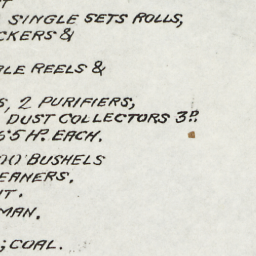 SINGLE SETS ROLLS,
CKERS &
BLE REELS &
S, 2 PURIFIERS,
DUST COLLECTORS 3P.
65 HP. EACH.
00 BUSHELS
EANERS.
T.
MAN.
; COAL.